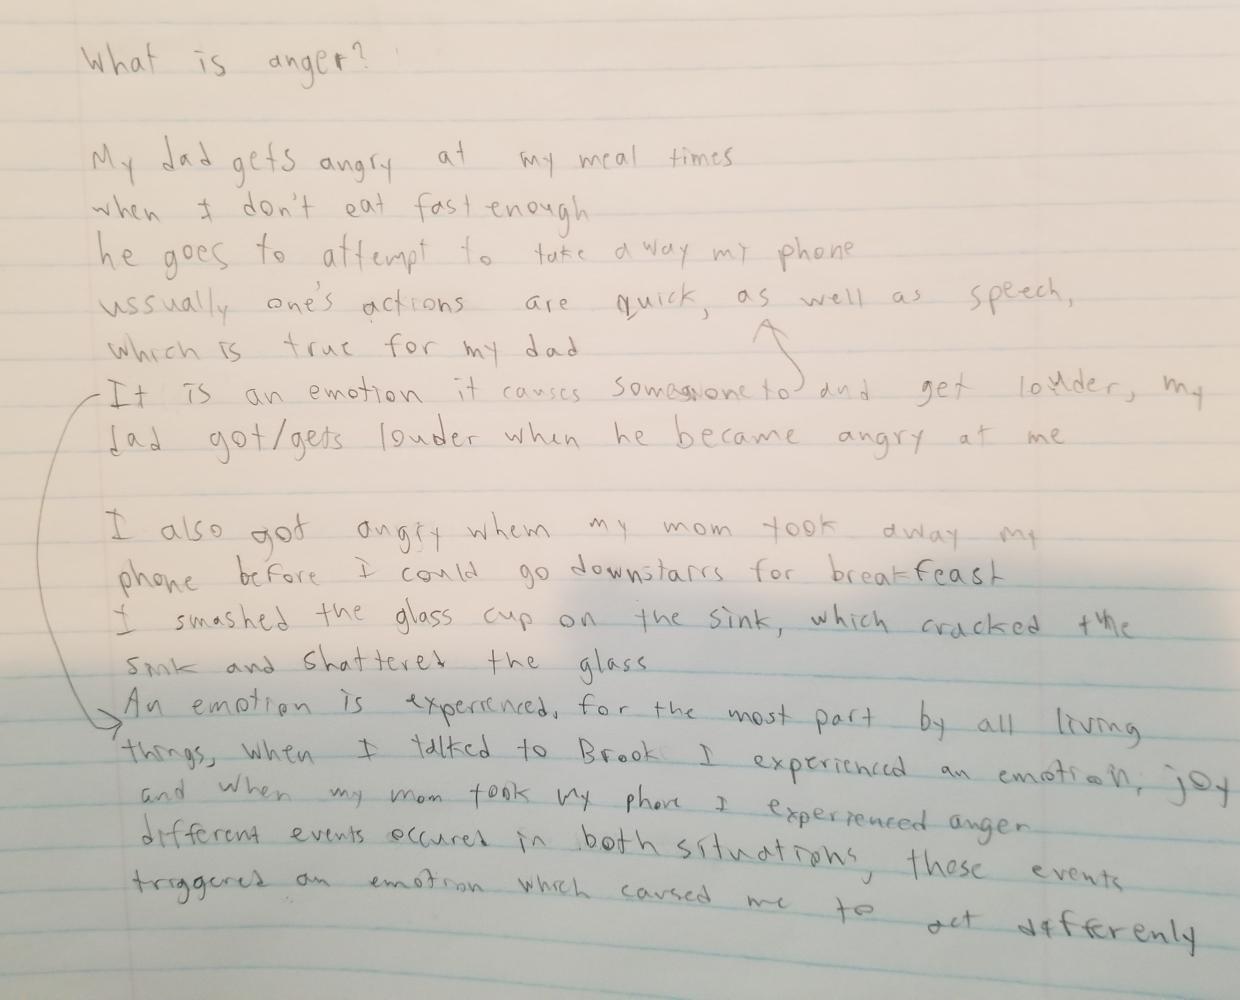 What is anger?
My dad gets angry at my meal times
when I don't eat fast enough
he goes to attempt to take away my phone
ussually one's actions are quick, as well as speech,
which is true for my dad
It is an emotion it causes someone to and get louder, my
dad got/gets louder when he became angry at me
I also got angry whem my mom took away my
phone before I could go downstairs for breakfeast
I smashed the glass cup on the sink, which cracked the
sink and shattered the glass
An emotion is experienced, for the most part by all living
things, when I talked to Brook I experienced an emotion, joy
and when my mom took my phone I experienced anger
different events occured in both situations, those events
triggered an emotion which caused me to act differenly